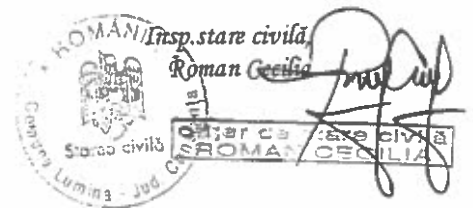 ROMÂNIA
Insp.stare civilă,
Roman Cecilia
Starea civilă
Comuna Lumina - Jud. Constanța
Ofițer de stare civilă
ROMAN CECILIA